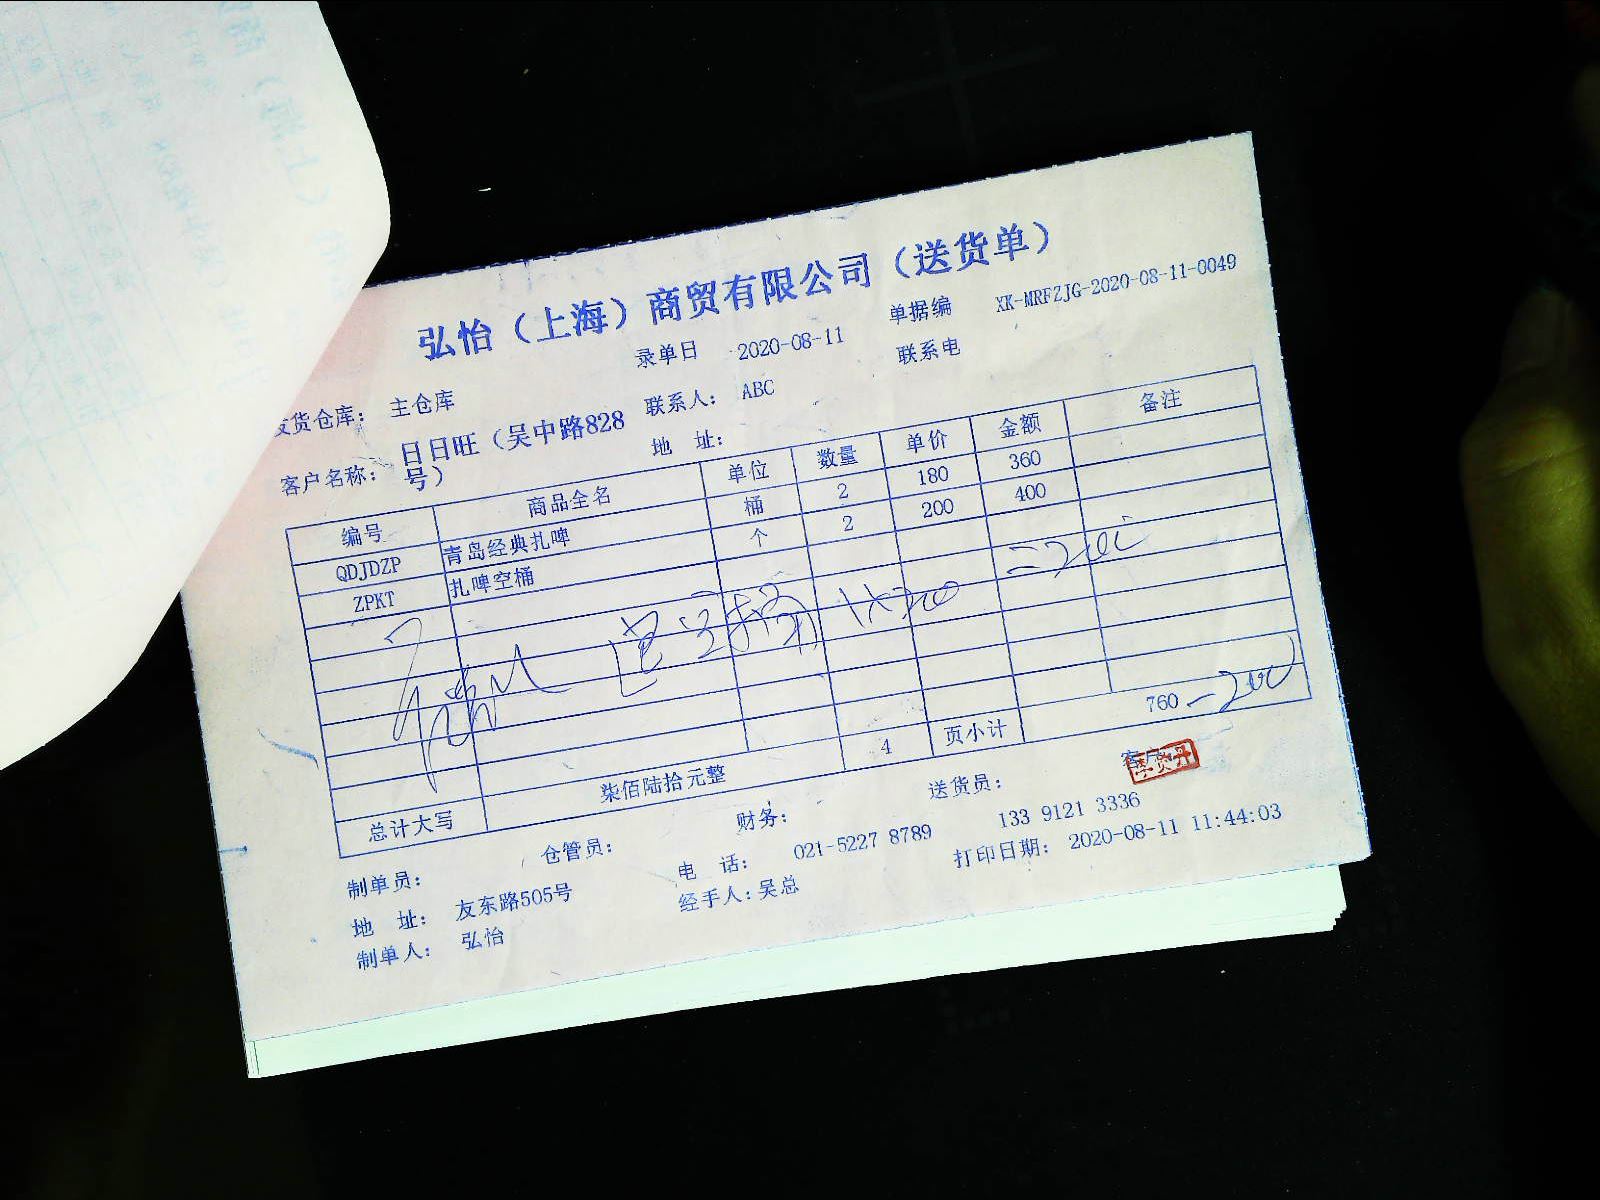 弘怡（上海）商贸有限公司（送货单）
录单日 2020-08-11 单据编 XK-MRFZJG-2020-08-11-0049
发货仓库： 主仓库 联系人： ABC 联系电
客户名称： 日日旺（吴中路828号） 地 址：
编号 商品全名 单位 数量 单价 金额 备注
QDJDZP 青岛经典扎啤 桶 2 180 360
ZPKT 扎啤空桶 个 2 200 400
空桶 1×200 =200
4 页小计 760 -200
总计大写 柒佰陆拾元整
制单员： 仓管员： 财务： 送货员： 客户
地 址： 友东路505号 电 话： 021-5227 8789 133 9121 3336
制单人： 弘怡 经手人：吴总 打印日期： 2020-08-11 11:44:03